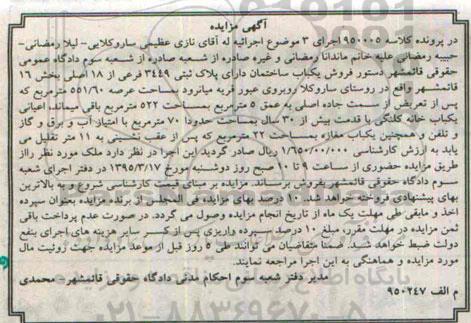 آگهی مزایده
در پرونده کلاسه ۹۵۰۰۰۵ اجرای ۳ موضوع اجرائیه له آقای نازی عظیمی ساروکلایی- لیلا رمضانی-
حبیبه رمضانی علیه خانم ماندانا رمضانی و غیره صادره از شعبه صادره از شعبه سوم دادگاه عمومی
حقوقی قائمشهر دستور فروش یکباب ساختمان دارای پلاک ثبتی ۳۴۴۹ فرعی از ۱۸ اصلی بخش ۱۶
قائمشهر واقع در روستای ساروکلا روبروی عبور قریه میانرود بمساحت عرصه ۵۵۱/۶۰ مترمربع که
پس از تعریض از سمت جاده اصلی به عمق ۵ مترمربع بمساحت ۵۲۲ مترمربع باقی میماند اعیانی
یکباب خانه کلنگی با قدمت بیش از ۳۰ سال بمساحت حدودا ۷۰ مترمربع با امتیاز آب و برق و گاز
و تلفن و همچنین یکباب مغازه بمساحت ۲۲ مترمربع که پس از عقب نشینی به ۱۱ متر تقلیل می
یابد به ارزش کارشناسی ۱/۶۵۰/۰۰۰/۰۰۰ ریال صادر گردید این اجرا در نظر دارد ملک مورد نظر رااز
طریق مزایده حضوری از ساعت ۹ تا ۱۰ صبح روز دوشنبه مورخ ۱۳۹۵/۳/۱۷ در دفتر اجرای شعبه
سوم دادگاه حقوقی قائمشهر بفروش برساند. مزایده بر مبنای قیمت کارشناسی شروع و به بالاترین
بهای پیشنهادی فروخته خواهد شد. ۱۰ درصد بهای مزایده فی المجلس از برنده مزایده بعنوان سپرده
اخذ و مابقی طی مهلت یک ماه از تاریخ انجام مزایده وصول می گردد. در صورت عدم پرداخت باقی
ثمن مزایده در مهلت مقرر، مبلغ ۱۰ درصد سپرده واریزی پس از کسر سایر هزینه های اجرای بنفع
دولت ضبط خواهد شد. ضمنا متقاضیان می توانند طی ۵ روز قبل از موعد مزایده جهت روئیت مال
مورد مزایده و هماهنگی به این اجرا مراجعه نمایند.
مدیر دفتر شعبه سوم احکام مدنی دادگاه حقوقی قائمشهر- محمدی
م الف ۹۵۰۲۴۷
۰۲۱-۸۸۳۴۹۶۷۰-۵